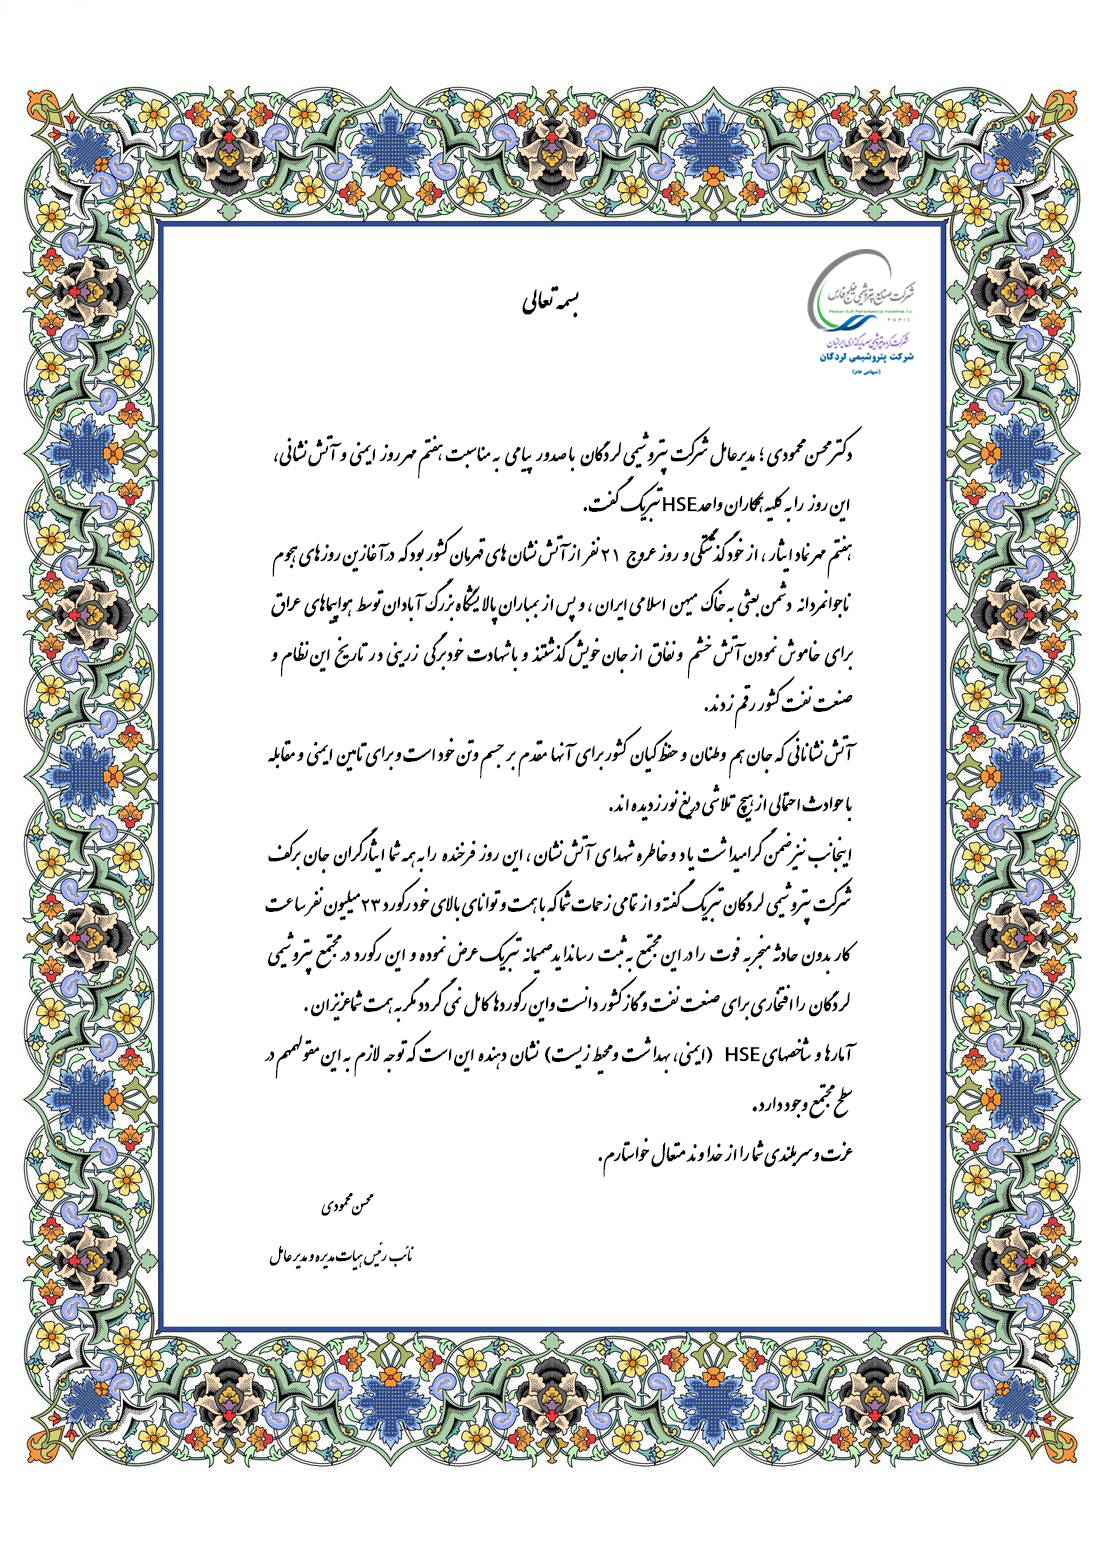 شرکت صنایع پتروشیمی خلیج فارس
Persian Gulf Petrochemical Industries Co.
P G P I C
شرکت گروه پتروشیمی سرمایه‌گذاری ایرانیان
شرکت پتروشیمی لردگان
(سهامی عام)
بسمه تعالی
دکتر محسن محمودی ؛ مدیرعامل شرکت پتروشیمی لردگان با صدور پیامی به مناسبت هفتم مهر روز ایمنی و آتش نشانی،
این روز را به کلیه همکاران واحد HSE تبریک گفت.
هفتم مهر نماد ایثار ، از خود گذشتگی و روز عروج ۲۱ نفر از آتش نشان های قهرمان کشور بود که در آغازین روزهای هجوم
ناجوانمردانه دشمن بعثی به خاک میهن اسلامی ایران ، و پس از بمباران پالایشگاه بزرگ آبادان توسط هواپیماهای عراق
برای خاموش نمودن آتش خشم و نفاق از جان خویش گذشتند و با شهادت خود برگی زرینی در تاریخ این نظام و
صنعت نفت کشور رقم زدند.
آتش نشانانی که جان هم وطنان و حفظ کیان کشور برای آنها مقدم بر جسم و تن خود است و برای تامین ایمنی و مقابله
با حوادث احتمالی از هیچ تلاشی دریغ نورزدیده اند.
اینجانب نیز ضمن گرامیداشت یاد و خاطره شهدای آتش نشان ، این روز فرخنده را به همه شما ایثارگران جان برکف
شرکت پتروشیمی لردگان تبریک گفته و از تمامی زحمات شما که با همت و توانای بالای خود رکورد ۲۳ میلیون نفر ساعت
کار بدون حادثه منجر به فوت را در این مجتمع به ثبت رسانداید صمیمانه تبریک عرض نموده و این رکورد در مجتمع پتروشیمی
لردگان را افتخاری برای صنعت نفت و گاز کشور دانست و این رکوردها کامل نمی گردد مگر به همت شما عزیزان .
آمارها و شاخصهای HSE (ایمنی، بهداشت و محیط زیست) نشان دهنده این است که توجه لازم به این مقوله مهم در
سطح مجتمع وجود دارد.
عزت و سربلندی شما را از خداوند متعال خواستارم.
محسن محمودی
نائب رئیس هیات مدیره و مدیر عامل